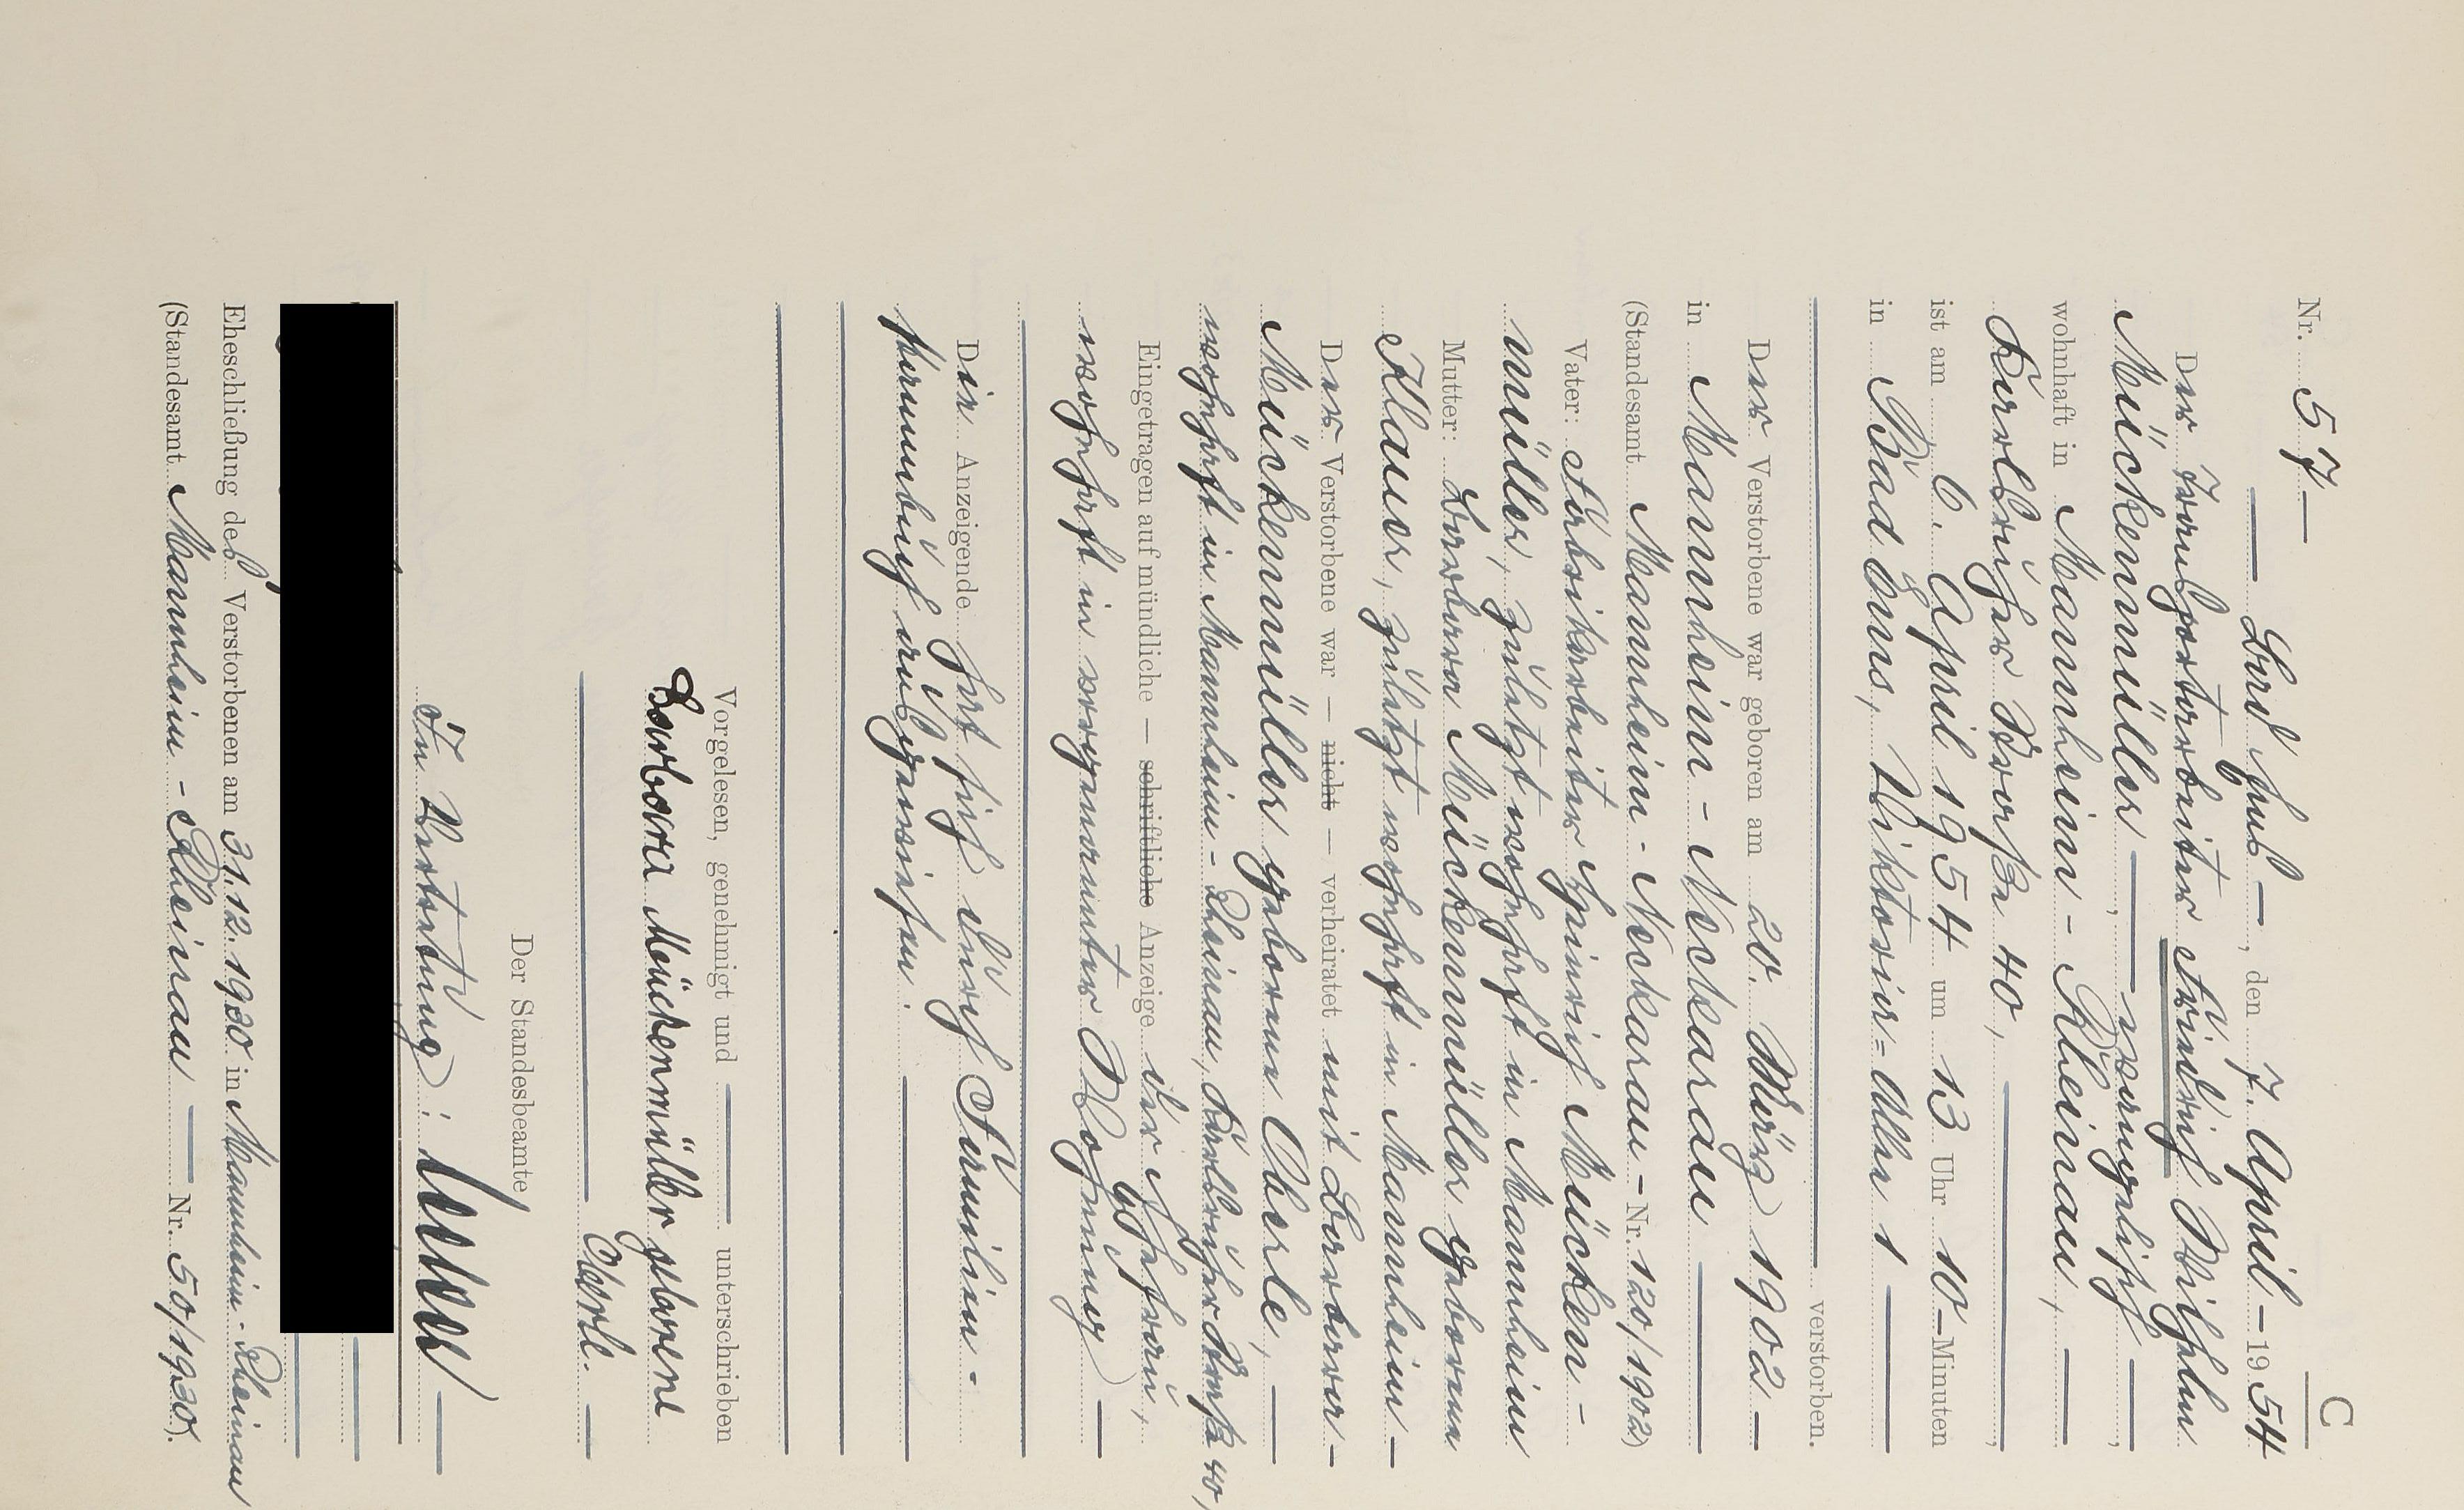 C
Nr. 57 —
— Bad Ems —, den 7. April — 1954
Der Transportarbeiter Friedrich Wilhelm
Mückenmüller —, — evangelisch —,
wohnhaft in Mannheim - Rheinau, —
Karlsruher Straße 40, —,
ist am 6. April 1954 um 13 Uhr 10 — Minuten
in Bad Ems, Viktoria = Allee 1 —
verstorben.
Der Verstorbene war geboren am 20. März 1902 —
in Mannheim - Neckarau —
(Standesamt Mannheim - Neckarau — Nr. 120/1902)
Vater: Fabrikarbeiter Heinrich Mücken -
müller, zuletzt wohnhaft in Mannheim
Mutter: Barbara Mückenmüller geborene
Klauer, zuletzt wohnhaft in Mannheim —
Der Verstorbene war — nicht — verheiratet mit Barbara —
Mückenmüller geborene Eberle, —
wohnhaft in Mannheim - Rheinau, Karlsruher Straße 40,
Eingetragen auf mündliche — schriftliche Anzeige der Ehefrau,
wohnhaft in vorgenannter Wohnung —
Die Anzeigende hat sich durch Familien -
stammbuch ausgewiesen. —
Vorgelesen, genehmigt und — unterschrieben
Barbara Mückenmüller geborene
Eberle. —
Der Standesbeamte
In Vertretung:
Eheschließung des Verstorbenen am 31.12.1930 in Mannheim - Rheinau
(Standesamt Mannheim - Rheinau — Nr. 50/1930).